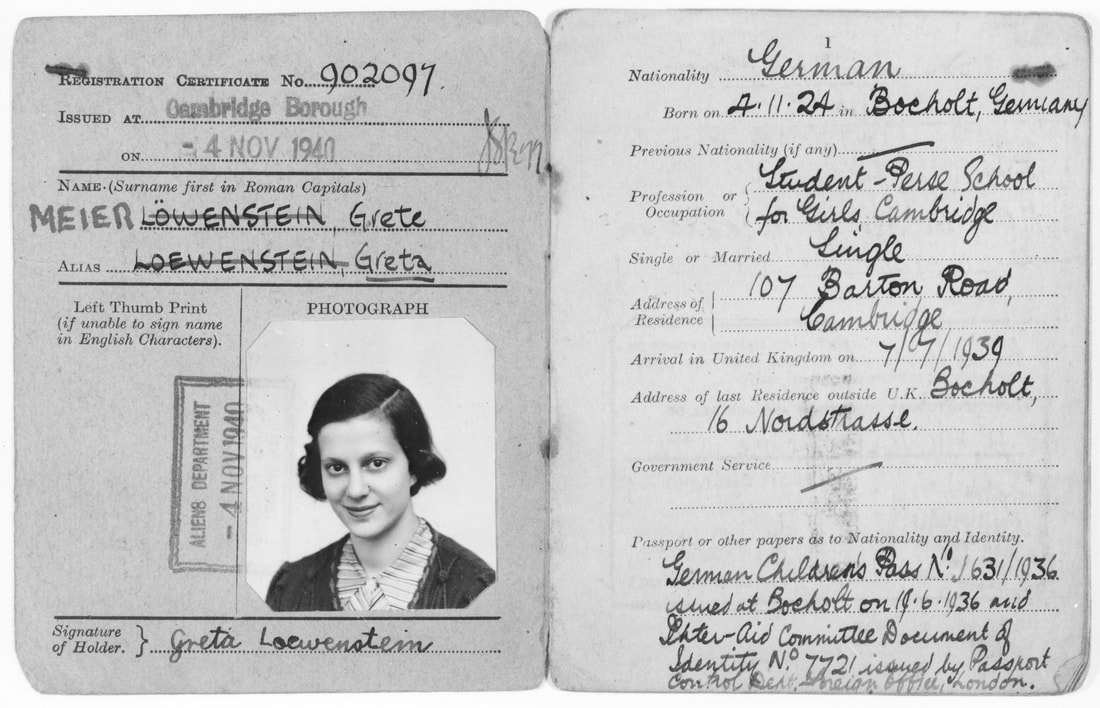 REGISTRATION CERTIFICATE No. 902097.
ISSUED AT Cambridge Borough
ON - 4 NOV 1940
NAME (Surname first in Roman Capitals)
MEIER LÖWENSTEIN, Grete
ALIAS LOEWENSTEIN, Greta
Left Thumb Print
(if unable to sign name
in English Characters).
PHOTOGRAPH
ALIENS DEPARTMENT
- 4 NOV 1940
Signature
of Holder. } Greta Loewenstein
1
Nationality German
Born on 4.11.24 in Bocholt, Germany
Previous Nationality (if any)
Profession or Occupation { Student - Perse School
for Girls, Cambridge
Single or Married Single
Address of Residence 107 Barton Road,
Cambridge
Arrival in United Kingdom on 7/7/1939
Address of last Residence outside U.K. Bocholt,
16 Nordstrasse.
Government Service
Passport or other papers as to Nationality and Identity.
German Children's Pass No. 1631/1936
issued at Bocholt on 19.6.1936 and
Inter-Aid Committee Document of
Identity No. 7721 issued by Passport
Control Dept. Foreign Office, London.